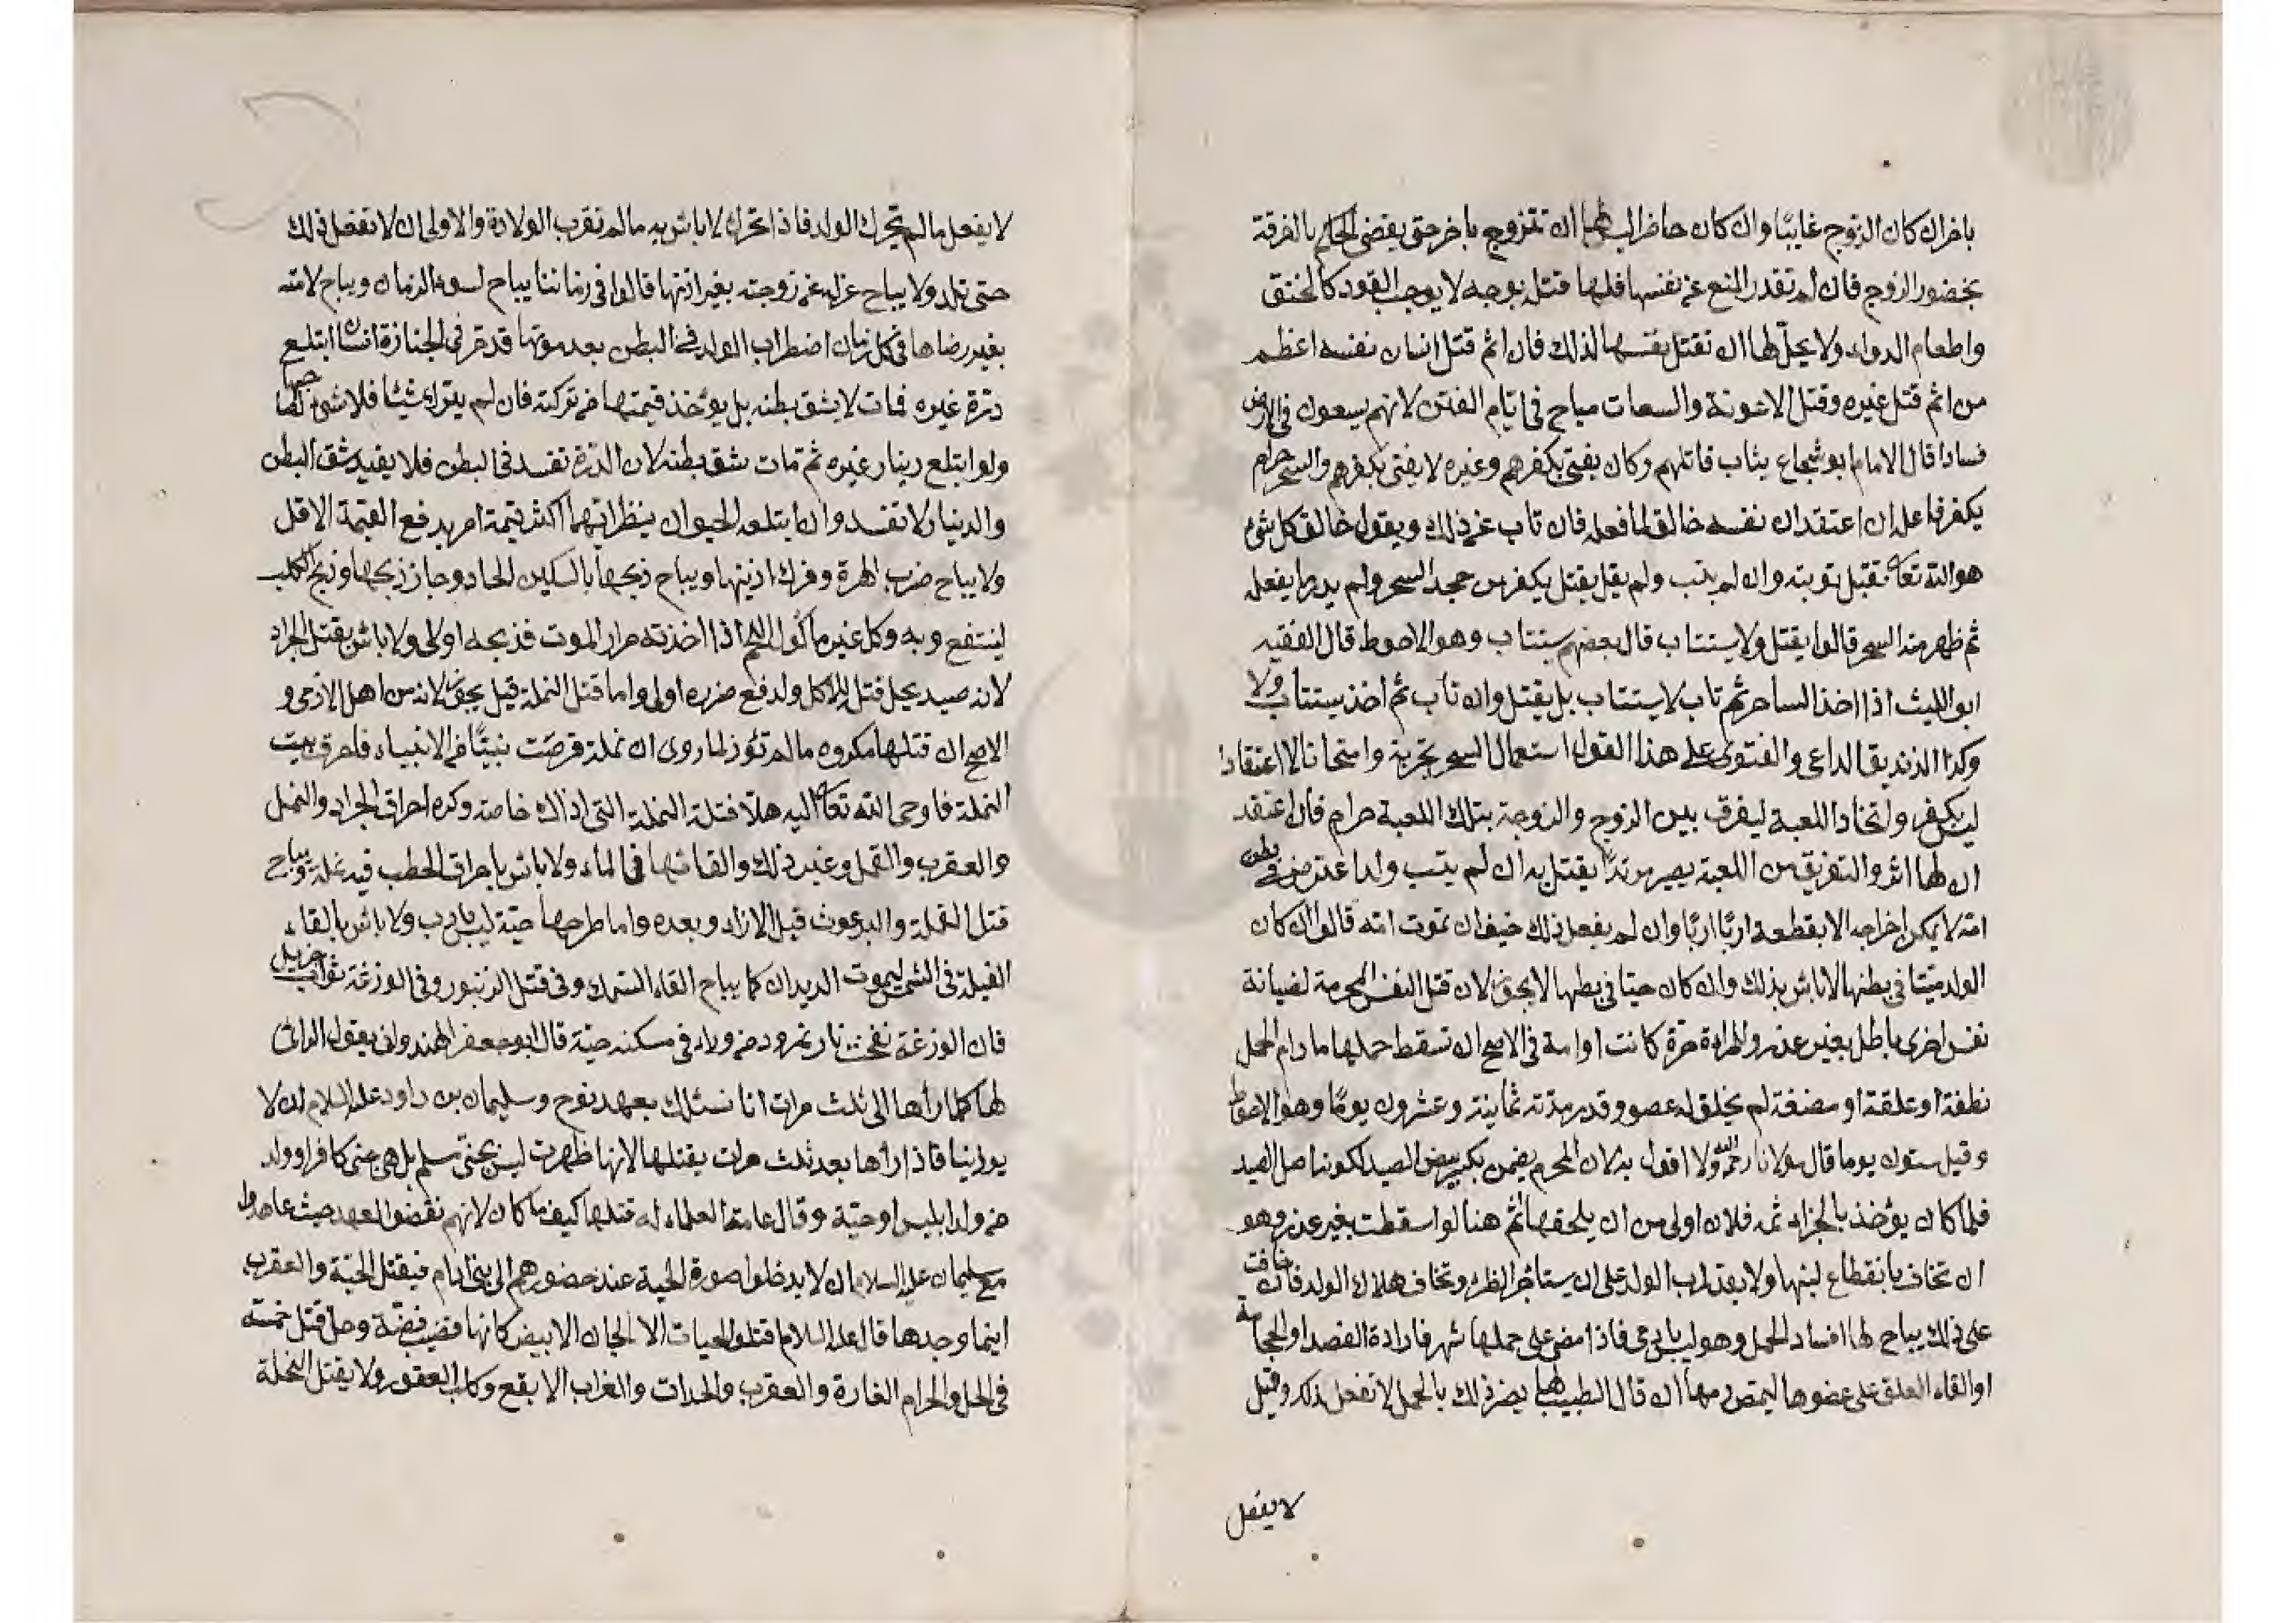 باخر ان كان الزوج غايبًا وان كان حاضرا ليس لها ان تتزوج باخر حتى يقضى الحاكم بالفرقة
بحضور الزوج فان لم تقدر المنع عن نفسها فلها قتله بوجه لا يوجب القود كالخنق
واطعام الدواء ولا يحل لها ان تقتل نفسها لذلك فان اثم قتل انسان نفسه اعظم
من اثم قتل غيره وقتل الاعونة والسعات مباح فى ايام الفتن لانهم يسعون فى الارض
فسادا قال الامام ابو شجاع يثاب قاتلهم وكان يفتى بكفرهم وغيره لا يفتى بكفرهم والسحر حرام
يكفر فاعله ان اعتقد ان نفسه خالق لما فعله فان تاب عن ذلك ويقول خالق كل شئ
هو الله تعا تقبل توبته وان لم يتب ولم يقل يقتل يكفر من جحد السحر ولم يدر ما يفعله
ثم ظهر منه السحر قالوا يقتل ولا يستتاب قال بعضهم يستتاب وهو الاحوط قال الفقيه
ابو الليث اذا اخذ الساحر ثم تاب لا يستتاب بل يقتل وان تاب ثم اخذ يستتاب ولا
وكذا الزنديق الداعى والفتوى على هذا القول استعمال السحر تجربة وامتحانا لا اعتقادا
ليس بكفر واتخاذ اللعبة ليفرق بين الزوج والزوجة بتلك اللعبة حرام فان اعتقد
ان لها اثر والتفريق من اللعبة يصير مرتدًا يقتل به ان لم يتب ولد اعترض فى بطن
امه لا يمكن اخراجه الا بقطعه اربًا اربًا وان لم يفعل ذلك خيف ان تموت امه قالوا ان كان
الولد ميتا فى بطنها لا باش بذلك وان كان حيتا فى بطنها لا يجوز لان قتل النفس المحرمة لضيانة
نفس اخرى باطل بغير عذر والمراءة حرة كانت او امة فى الاصح ان تسقط حملها ما دام الحمل
نطفة او علقة او مضغة لم يخلق له عضو وقدر مدته ثمانية وعشرون يومًا وهو الاحوط
وقيل ستون يوما قال مولانا رحمه الله ولا اقول به لان المحرم يضمن بكسر بيض الصيد لكونه اصل الصيد
فلما كان يؤخذ بالجزاء ثمه فلان اولى من ان يلحقها اثم هنا لو اسقطت بغير عذر وهو
ان تخاف بانقطاع لبنها ولا يقدر اب الولد على ان يستأجر الظئر وتخاف هلاك الولد فان خافت
على ذلك يباح لها افساد الحمل وهو ليس بادمى فاذا مضى على حملها شهر فارادة الفصد او الحجامة
او القاء العلق على عضوها ليمص دمها ان قال الطبيب لها يضر ذلك بالحمل لا تفعل ذلك وقيل
لا يفعل
لا يفعل ما لم يتحرك الولد فاذا تحرك لا باش به ما لم تقرب الولادة والاولى ان لا تفعل ذلك
حتى تلد ولا يباح عزله عن زوجته بغير اذنها قالوا فى زماننا يباح لسوء الزمان ويباح لامته
بغير رضاها فى كل زمان اضطراب الولد فى البطن بعد موتها قد مر فى الجنازة انسان ابتلع
درة غيره فمات لا يشق بطنه بل يؤخذ قيمتها من تركته فان لم يترك شيئا فلا شئ لصاحبها
ولو ابتلع دينار غيره ثم مات يشق بطنه لان الدرة تفسد فى البطن فلا يفيد شق البطن
والدينار لا تفسد وان ابتلعه الحيوان ينظر ايهما اكثر قيمة امر بدفع القيمة الاقل
ولا يباح ضرب الهرة وفرك اذنيها ويباح ذبحها بالسكين الحاد وجاز ذبحها وذبح الكلب
لينتفع به وكل غير ماكول اللحم اذا اخذته مرار الموت فذبحه اولى ولا باش بقتل الجراد
لانه صيد يحل قتله للاكل ولدفع ضرره اولى واما قتل النملة قيل يجوز لانه من اهل الاذى و
الاصح ان قتلها مكروه ما لم تؤذ لما روى ان نملة قرصت نبيًّا من الانبياء فاحرق بيت
النملة فاوحى الله تعا اليه هلا قتلة النملة التى اذاك خاصة وكره احراق الجراد والنمل
والعقرب والقمل وغير ذلك والقائها فى الماء ولا باش باحراق الحطب فيه نملة ويباح
قتل القملة والبرغوث قبل الازاد وبعده واما طرحها حية ليس بادب ولا باش بالقاء
الفيلة فى الشمس ليموت الديدان كما يباح القاء السمك وفى قتل الزنبور وفى الوزغة ثواب جزيل
فان الوزغة نفخت نار نمرود من وراء فى مسكنه حية قال ابو جعفر الهندوانى يقول الرائى
لها كلما رأها الى ثلث مرات انا نسئلك بعهد نوح وسليمان بن داود عليه السلام ان لا
يوذينا فاذا رأها بعد ثلث مرات يقتلها لانها ظهرت ليس بجنى مسلم بل هى جنى كافر او ولد
من ولد ابليس او حية وقال عامة العلماء له قتلها كيف ما كان لانهم نقضوا العهد حيث عاهدوا
مع سليمان عليه السلام ان لا يدخلوا صورة الحية عند حضورهم الى بنى ادام فيقتل الحية والعقرب
اينما وجدها قال عليه السلام اقتلوا الحيات الا الجان الابيض كانها قضيب فضة وحل قتل خمسة
فى الحل والحرام الفارة والعقرب والحدات والغراب الابقع وكلب العقور ولا يقتل النحلة